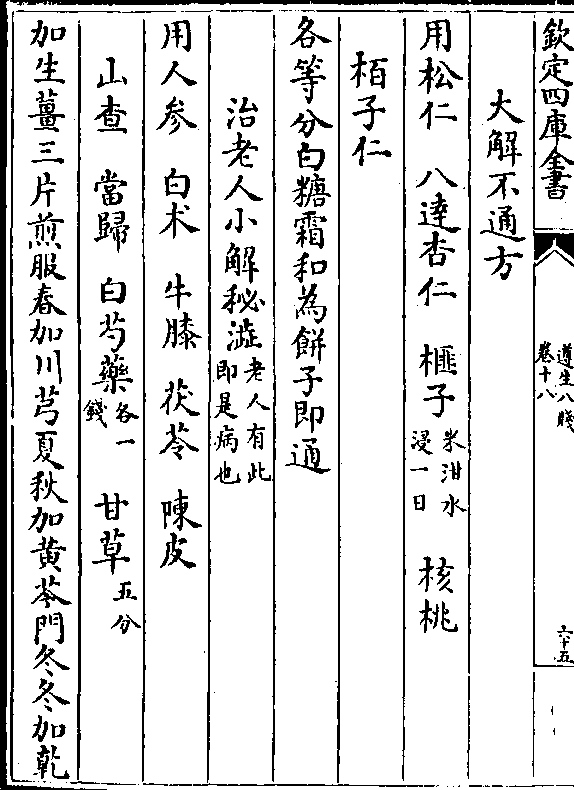 欽定四庫全書
遵生八牋
卷十八
六十五
大解不通方
用松仁　八達杏仁　榧子米泔水浸一日　核桃
栢子仁
各等分白糖霜和為餅子即通
治老人小解秘澁老人有此即是病也
用人參　白术　牛膝　茯苓　陳皮
山查　當歸　白芍藥各一錢　甘草五分
加生薑三片煎服春加川芎夏秋加黄芩門冬冬加乾